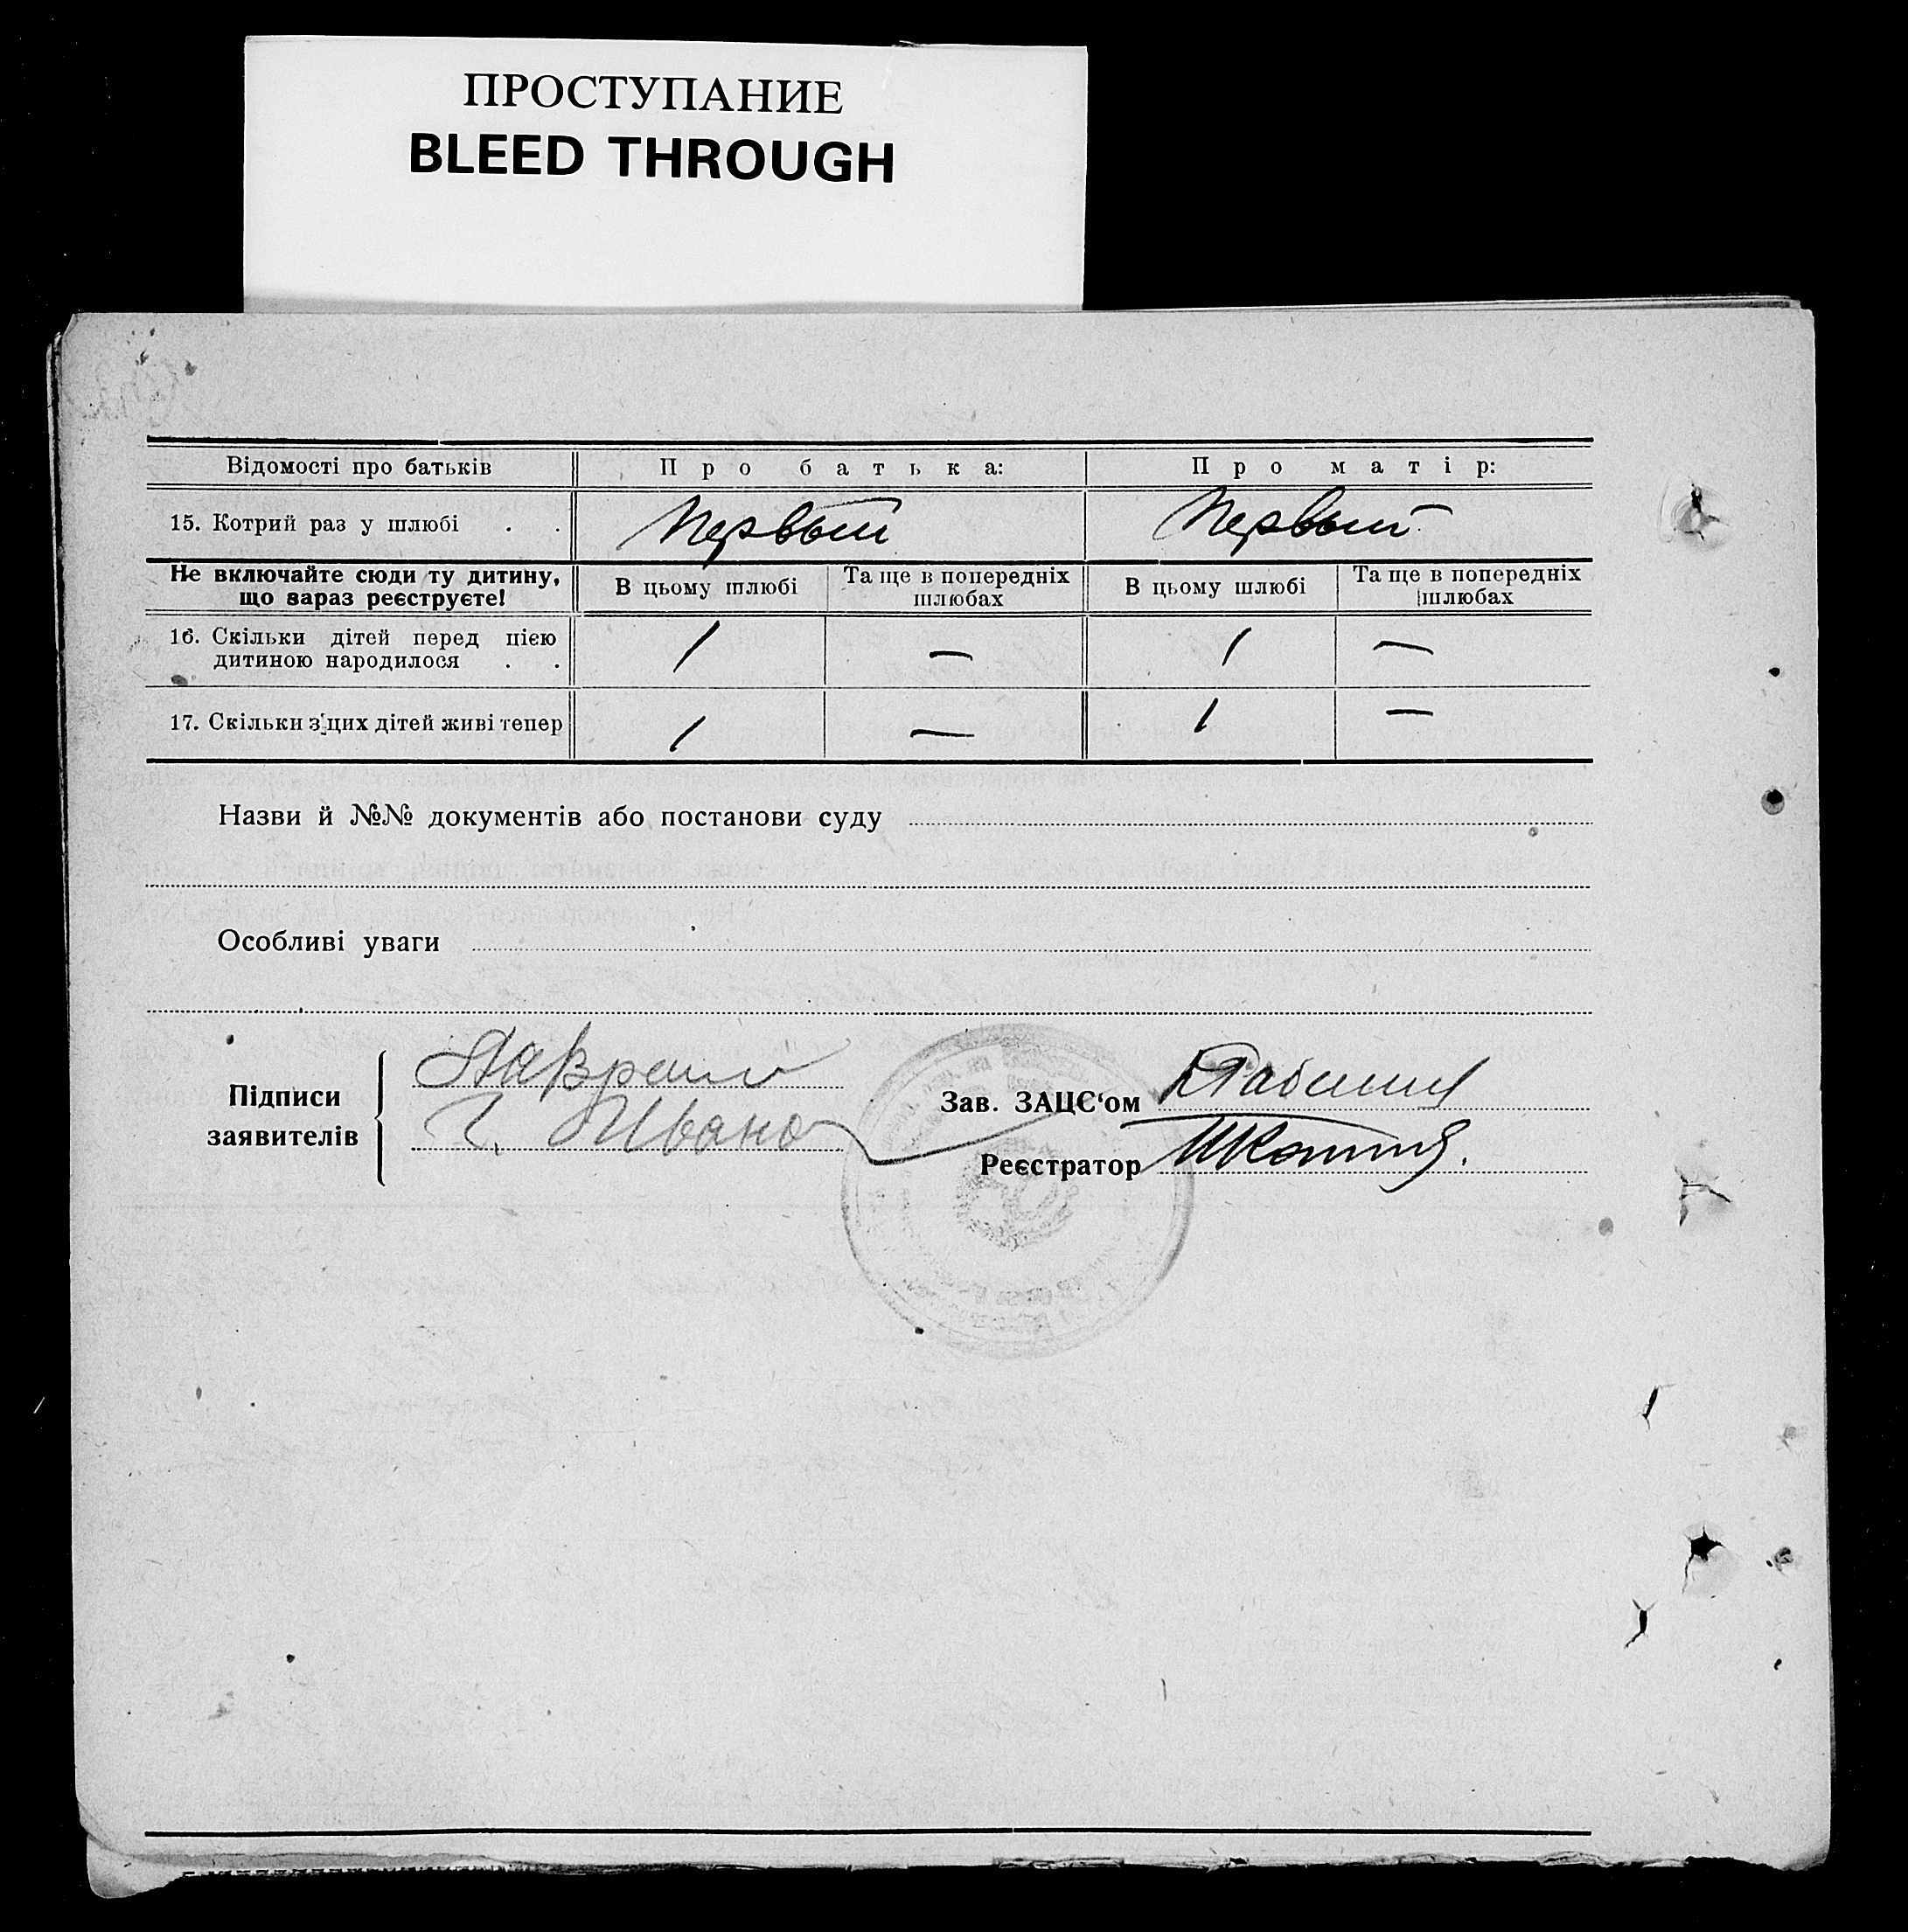 ПРОСТУПАНИЕ
BLEED THROUGH
Відомості про батьків Про батька: Про матір:
15. Котрий раз у шлюбі . . Первый Первый
Не включайте сюди ту дитину, що зараз реєструєте! В цьому шлюбі Та ще в попередніх шлюбах В цьому шлюбі Та ще в попередніх шлюбах
16. Скільки дітей перед цією дитиною народилося . . 1 — 1 —
17. Скільки з цих дітей живі тепер 1 — 1 —
Назви й №№ документів або постанови суду
Особливі уваги
Підписи заявителів
Зав. ЗАЦС‘ом
Реєстратор